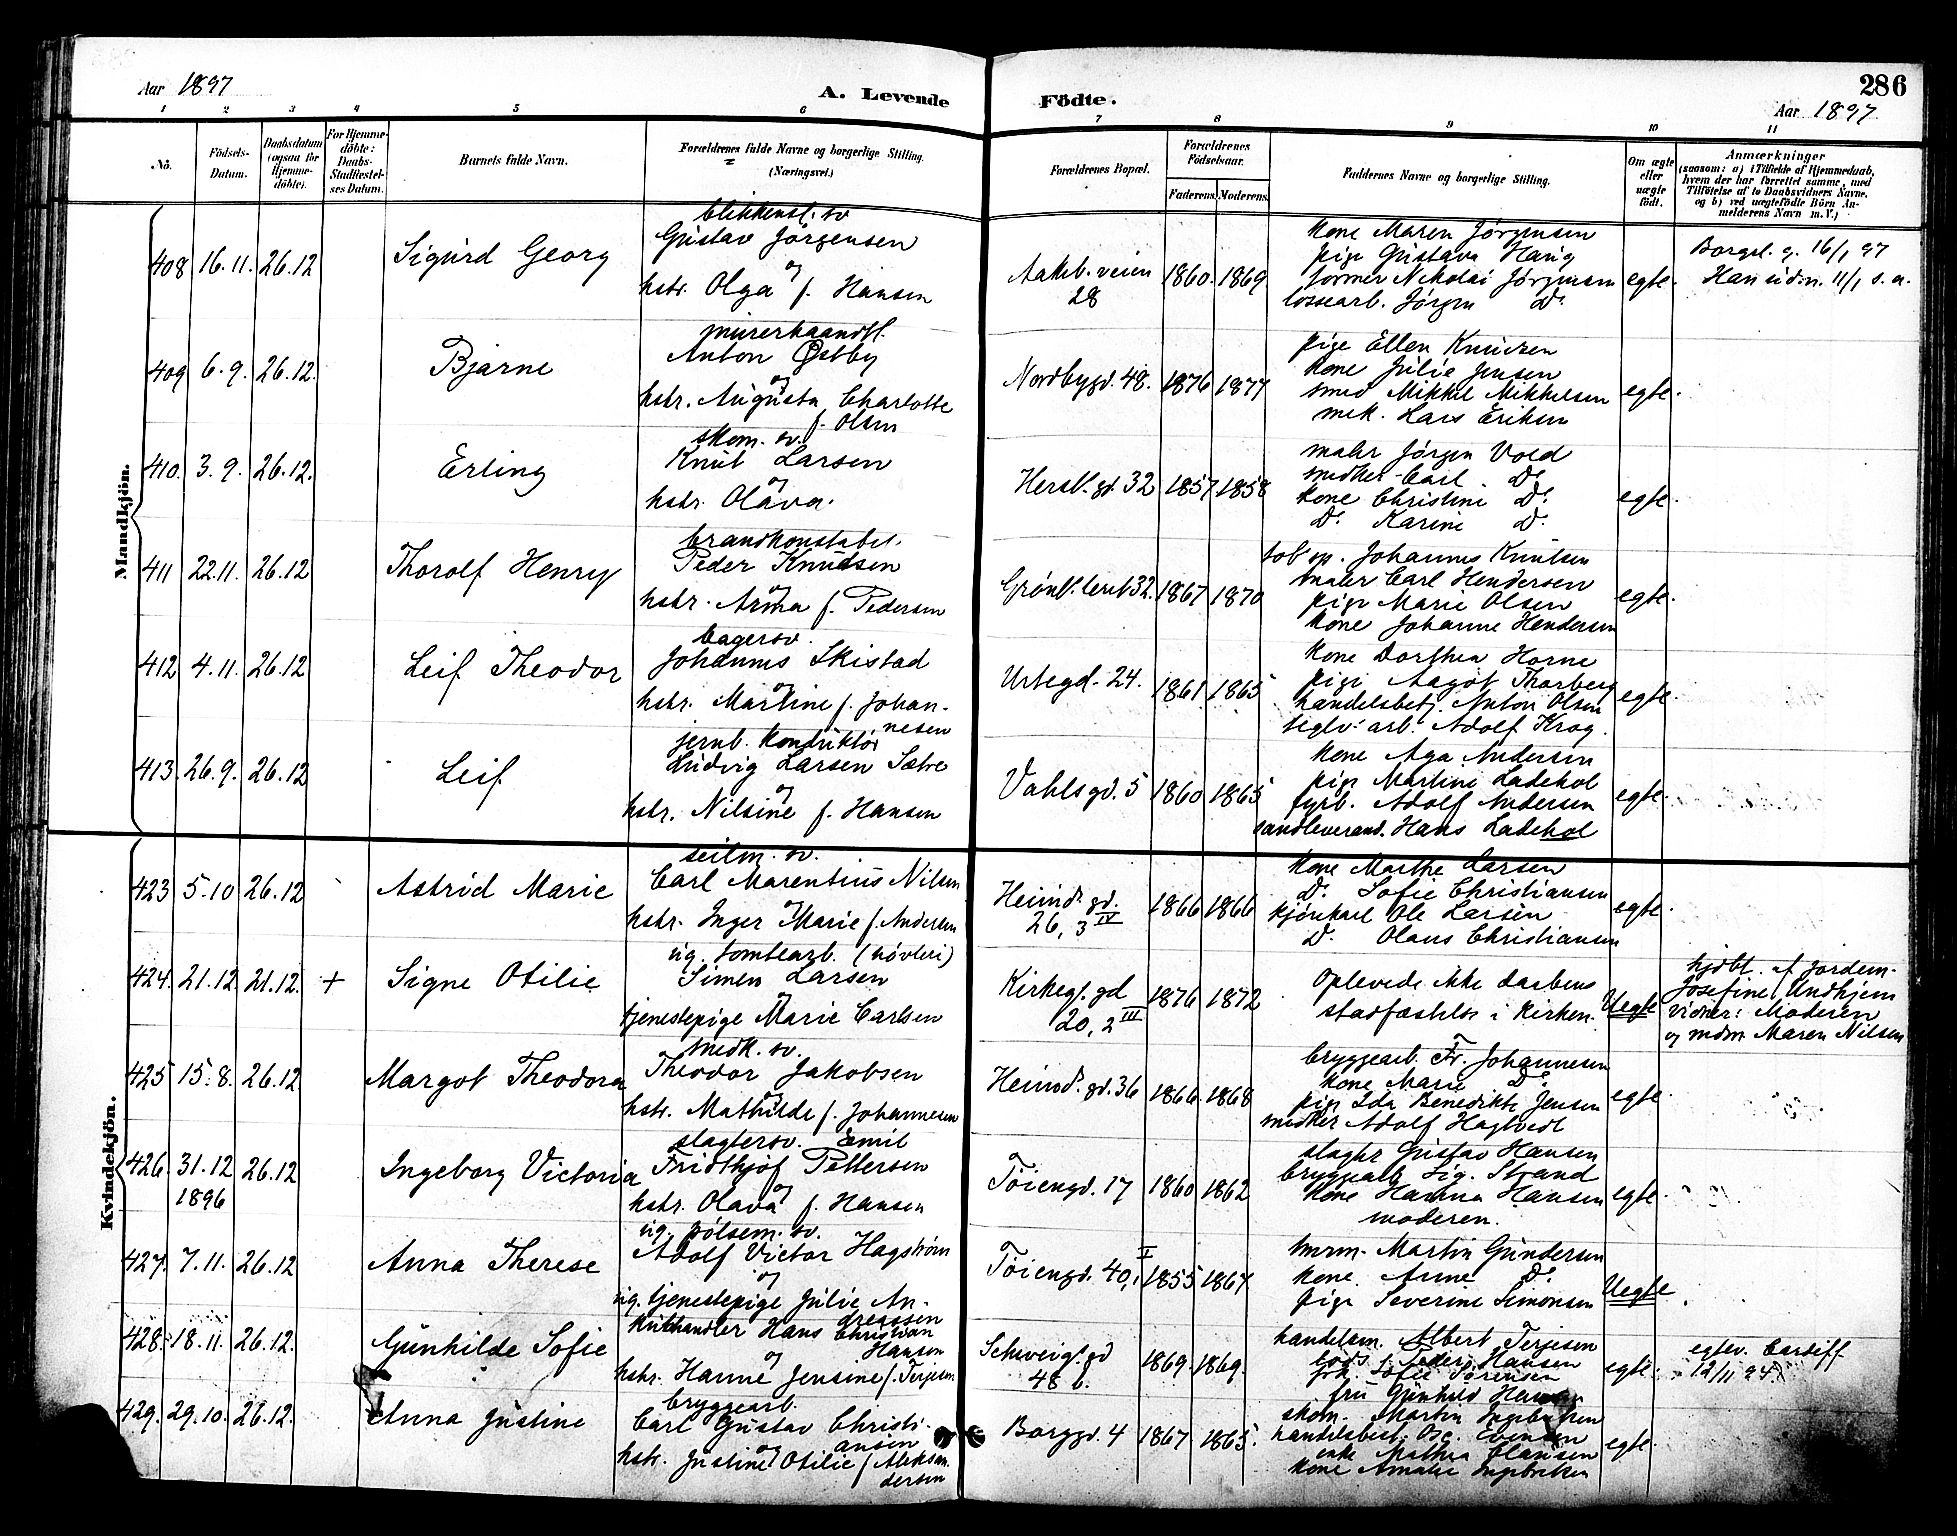 286
Aar 1897
A. Levende Födte.
Aar 1897
1 2 3 4 5 6 7 8 9 10 11
No.
Födsels-Datum.
Daabsdatum (ogsaa for Hjemmedöbte).
For Hjemmedöbte: Daabs-Stadfæstelses Datum.
Barnets fulde Navn.
Forældrenes fulde Navne og borgerlige Stilling.
(Næringsvei.)
Forældrenes Bopæl.
Forældrenes Födselsaar.
Faderens. Moderens.
Faddernes Navne og borgerlige Stilling.
Om ægte eller uægte födt.
Anmærkninger
(saasom: a) i Tilfælde af Hjemmedaab,
hvem der har forrettet samme, med
Tilföielse af to Daabsvidners Navne,
og b) ved uægtefödte Börn Anmelderens Navn m. V.)
Mandkjön.
408 16.11. 26.12 Sigurd Georg
blikkensl. sv
Gustav Jørgensen
og
hstr. Olga f. Hansen
Aakeb. veien
28
1860. 1869
kone Maren Jørgensen
pige Gustava Haug
former Nikolai Jørgensen
lossearb. Jørgen Do
egte.
16/1 97
11/1 s.a.
409 6.9. 26.12. Bjarne
murerhaandl.
Anton Østby
og
hstr. Augusta Charlotte
f. Olsen
Nordbygd. 48. 1876 1877
pige Ellen Knudsen
kone Julie Jensen
smed Mikkel Mikkelsen
mek. Lars Eriksen
egte.
410. 3.9. 26.12. Erling
skom. sv.
Knut Larsen
og
hstr. Olava.
Hersl. gd. 32 1857 1858
maler Jørgen Vold
snedker Carl Do
kone Christine Do
Do Karine Do
egte.
411 22.11. 26.12 Thorolf Henry
brandkonstabel.
Peder Knudsen
og
hstr. Anna f. Pedersen
Grønl. leret 32. 1867 1870
Johannes Knutsen
maler Carl Hendersen
pige Marie Olsen
kone Johanne Hendersen
egte.
412 4.11. 26.12 Leif Theodor
bagersv.
Johannes Skistad
og
hstr. Martine f. Johan-
nesen
Urtegd. 24. 1861 1865
kone Dorthea Horne
pige Aagot Thorberg
handelsbetj. Anton Olsen
teglv. arb. Adolf Krog.
egte.
413. 26.9. 26.12 Leif
jernb. konduktør
Ludvig Larsen Sætre
og
hstr. Nilsine f. Hansen
Vahlsgd. 5 1860 1865
kone Aga Andersen
pige Martine Ladehol
fyrb. Adolf Andersen
sandleverand. Hans Ladehol
egte.
Kvindekjön.
423 5.10 26.12 Astrid Marie
seilm. sv.
Carl Marentius Nilsen
hstr. Inger Marie f. Andersen
Heimd. gd.
26, 3 IV
1866 1866
kone Marthe Larsen
Do Sofie Christiansen
kjørekarl Ole Larsen
Do Olaus Christiansen
egte.
424. 21.12 21.12. + Signe Otilie
ug. tomtearb. (høvleri)
Simen Larsen
og
tjenestepige Marie Carlsen
Kirkeg. gd
20, 2 III
1876 1872
Oplevede ikke daabens
stadfæstelse i kirken.
Uegte
hjdbt. af Jordem.
Josefine Undhjem
vidner: Moderen
og mdm Maren Nilsen
425 15.8. 26.12 Margot Theodora
snedk. sv.
Theodor Jakobsen
og
hstr. Mathilde f. Johannesen
Heimd. gd. 36 1866 1868
bryggearb. Fr. Johannesen
kone Marie Do
pige Ida Benedikte Jensen
snedker Adolf Hagtvedt
egte.
426 31.12 26.12 Ingeborg Victoria
1896
slagtersv. Emil
Fridthjof Pettersen
og
hstr. Olava f. Hansen
Töiengd. 17 1860 1862
slagter Gustav Hansen
bryggearb. Sig. Strand
kone Hanna Hansen
moderen.
egte.
427. 7.11. 26.12 Anna Therese
ug. pølsem. sv.
Adolf Victor Hagstrøm
og
ug. tjenestepige Julie An-
dreassen
Töiengd. 40, V 1855 1867.
tmrm. Martin Gundersen
kone Anne Do
pige Severine Simonsen
Uegte
428. 18.11. 26.12. Gunhilde Sofie
Hans Christian
Hansen
og
hstr. Hanne Jensine f. Terjesen
Schweig. gd
48 b.
1869. 1869.
handelsm. Albert Terjesen
Peder Hansen
frk. Sofie Sørensen
fru Gunhild Hansen
egte.
Cardiff
12/11
429. 29.10. 26.12. Anna Justine
bryggearb.
Carl Gustav Christi-
ansen
og
hstr. Justine Otilie f. Aleksan-
dersen
Borggd. 4 1867 1865.
skom. Martin Ingebriksen
handelsbest. Osc. Evensen
enke Mathea Clausen
kone Amalie Ingebriksen
egte.